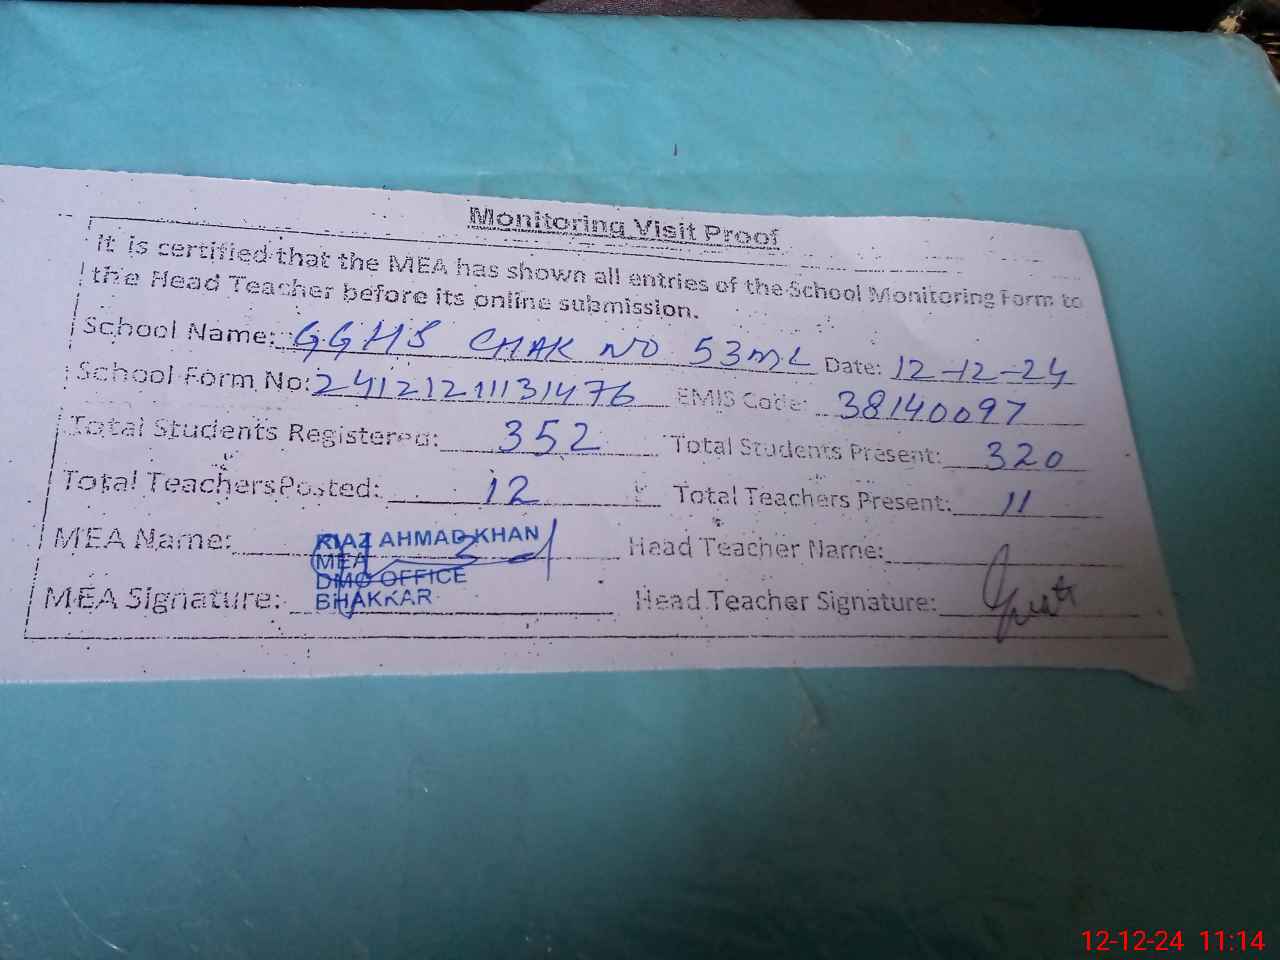 Monitoring Visit Proof
It is certified that the MEA has shown all entries of the School Monitoring Form to
the Head Teacher before its online submission.
School Name: GGHS CHAK NO 53ML Date: 12-12-24
School Form No: 24121211131476 EMIS Code: 38140097
Total Students Registered: 352 Total Students Present: 320
Total Teachers Posted: 12 Total Teachers Present: 11
MEA Name: RIAZ AHMAD KHAN Head Teacher Name:
MEA
DMO OFFICE
MEA Signature: BHAKKAR Head Teacher Signature:
12-12-24 11:14